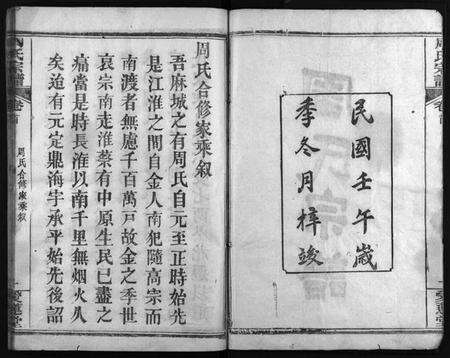 民國壬午歲
季冬月梓竣
周氏宗譜
卷首
周氏合修家乘叙
一
愛蓮堂
周氏合修家乘叙
吾麻城之有周氏自元至正時始先
是江淮之間自金人南犯隨高宗而
南渡者無慮千百萬戸故金之季世
哀宗南走淮蔡有中原生民已盡之
痛當是時長淮以南千里無烟火久
矣迨有元定鼎海宇承平始先後詔